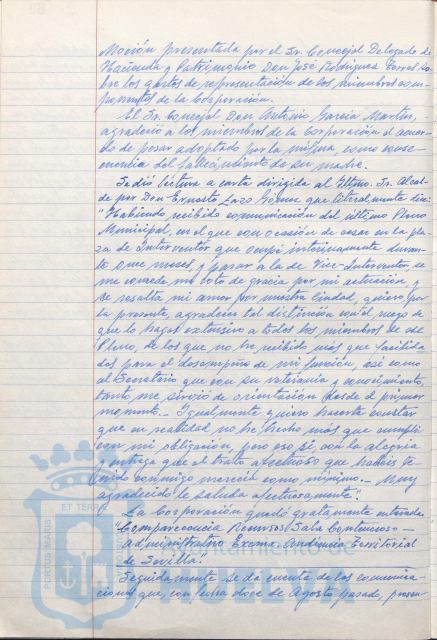 Moción presentada por el Sr. Concejal Delegado de
Hacienda y Patrimonio Don José Rodríguez so-
bre los gastos de representación de los miembros com-
ponentes de la Corporación.
El Sr. Concejal Don Antonio García Martín,
agradeció a los miembros de la Corporación el acuer-
do de pesar adoptado por la misma, como conse-
cuencia del fallecimiento de su madre.
Se dió lectura a carta dirigida al Iltmo. Sr. Alcal-
de por Don Ernesto Lazo Gómez que literalmente dice:
"Habiendo recibido comunicación del último Pleno
Municipal, en el que con ocasión de cesar en la pla-
za de Interventor que ocupé interinamente duran-
te once meses, y pasar a la de Vice-Interventor, se
me concede un voto de gracia por mi actuación, y
se resalta mi amor por nuestra Ciudad, quiero por
la presente, agradecer tal distinción con el ruego de
que lo hagas extensivo a todos los miembros de ese
Pleno, de los que no he recibido más que facilida
des para el desempeño de mi función, así como
al Secretario que con su veteranía y conocimiento,
tanto me sirvió de orientación desde el primer
momento.- Igualmente quiero hacerte constar
que en realidad no he hecho más que cumplir
con mi obligación, pero eso sí, con la alegría
y entrega que el trato afectuoso que habéis te-
nido conmigo merecía como mínimo.- Muy
agradecido le saluda afectuosamente".
La Corporación quedó gratamente enterada.
"Comparecencia Recursos Sala Contencioso-
administrativo Excma. Audiencia Territorial
de Sevilla.
Seguidamente se da cuenta de las comunica-
ciones que, con fecha doce de Agosto pasado, presen-
PORTUS MARIS ET TERRAE
Ayuntamiento de
HUELVA